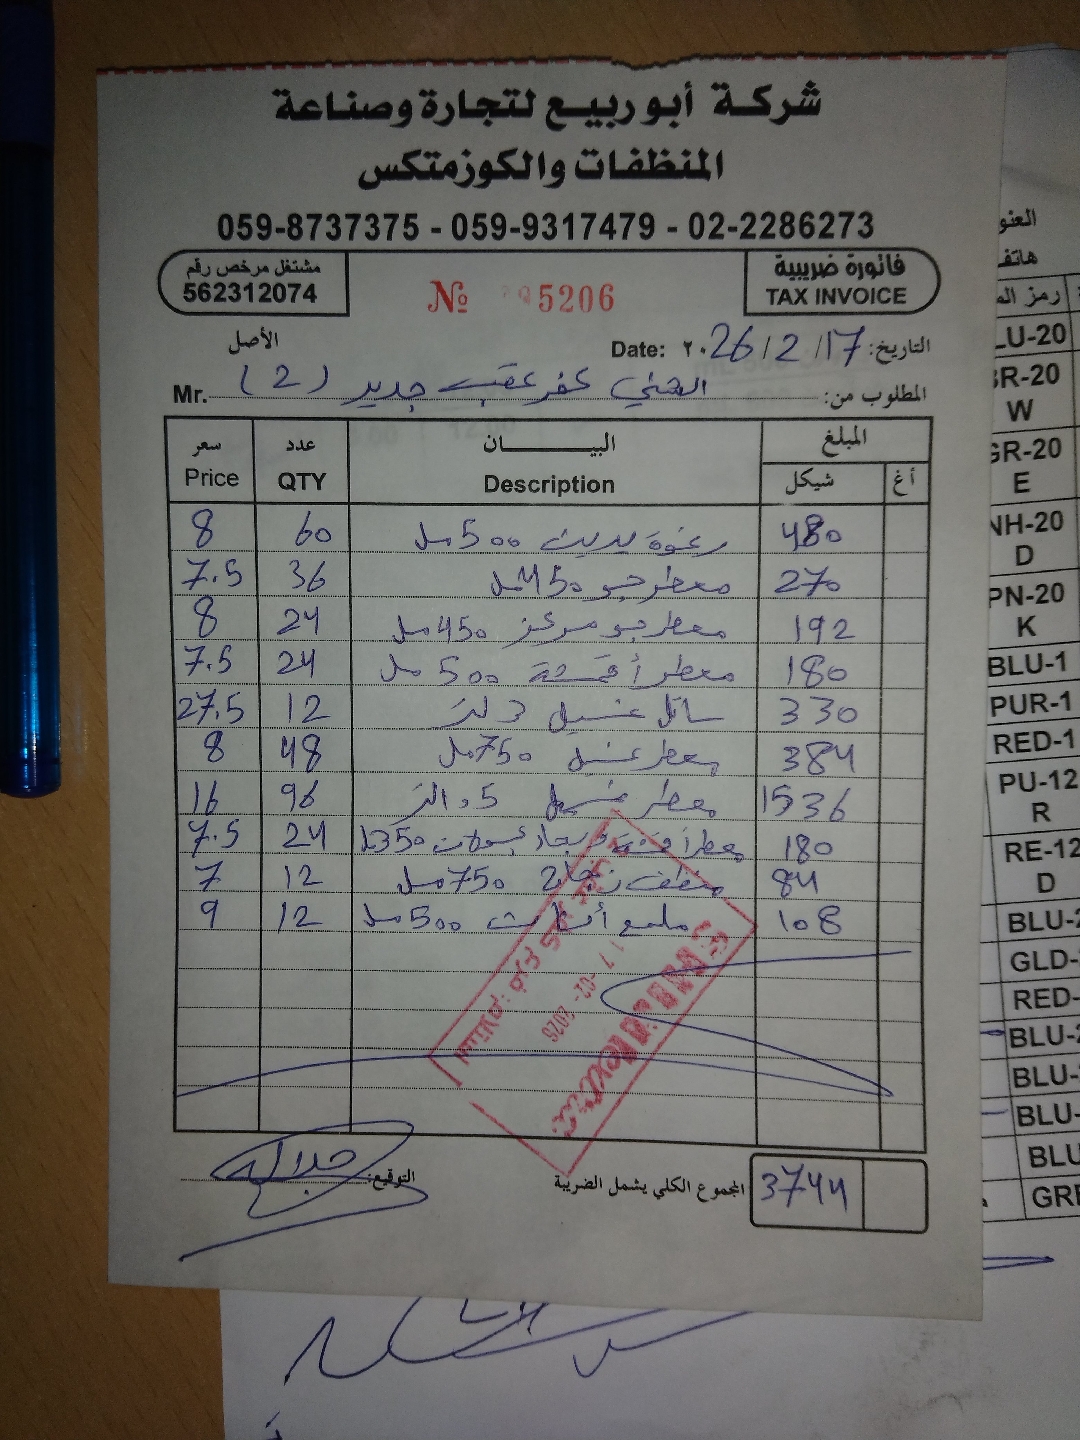 شركة أبو ربيع لتجارة وصناعة
المنظفات والكوزمتكس
059-8737375 - 059-9317479 - 02-2286273
مشتغل مرخص رقم
562312074
№ 5206
فاتورة ضريبية
TAX INVOICE
الأصل
التاريخ: 17/2/2026 :Date
المطلوب من: الهني كفر عقب جديد (2) Mr.
المبلغ البيـــــان عدد سعر
أغ شيكل Description QTY Price
480 رغوة يدين 500 مل 60 8
270 معطر جو 450 مل 36 7.5
192 معطر جو مركز 450 مل 24 8
180 معطر أقمشة 500 مل 24 7.5
330 سائل غسيل 3 لتر 12 27.5
384 معطر غسيل 750 مل 48 8
1536 معطر غسيل 96 16
180 معطر 24 7.5
84 منظف زجاج 750 مل 12 7
108 ملمع 500 مل 12 9
17-02-2026
المجموع الكلي يشمل الضريبة 3744
التوقيع:
العنو
هاتف
رمز الم
LU-20
BR-20
W
GR-20
E
NH-20
D
PN-20
K
BLU-1
PUR-1
RED-1
PU-12
R
RE-12
D
BLU-2
GLD-
RED-
BLU-2
BLU-
BLU-
BLU
GRE